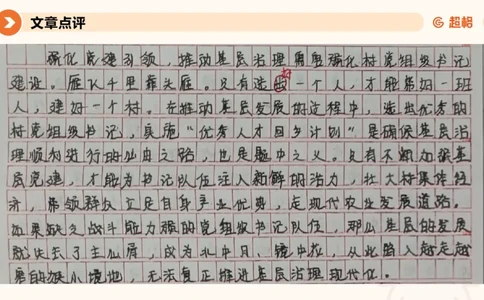 文章点评
超格
强化党建引领，推动基层治理需要强化村党组织书记
建设。雁飞千里靠头雁。只有选好一个人，才能带好一班
人，建好一个村。在推动基层发展的过程中，选出优秀的
村党组织书记，实施“优秀人才回乡计划”是确保基层治
理顺利进行的必由之路，也是题中之义。只有不断加强基
层党建，才能为书记队伍注入新鲜的活力，壮大村集体经
济，带领群众立足自身产业优势，走现代农业发展道路。
如果缺乏战斗能力强的党组织书记队伍，那么基层的发展
就失去了主心骨，成为水中月、镜中花，从此陷入越走越
窄的狭小境地，无法真正推进基层治理现代化。